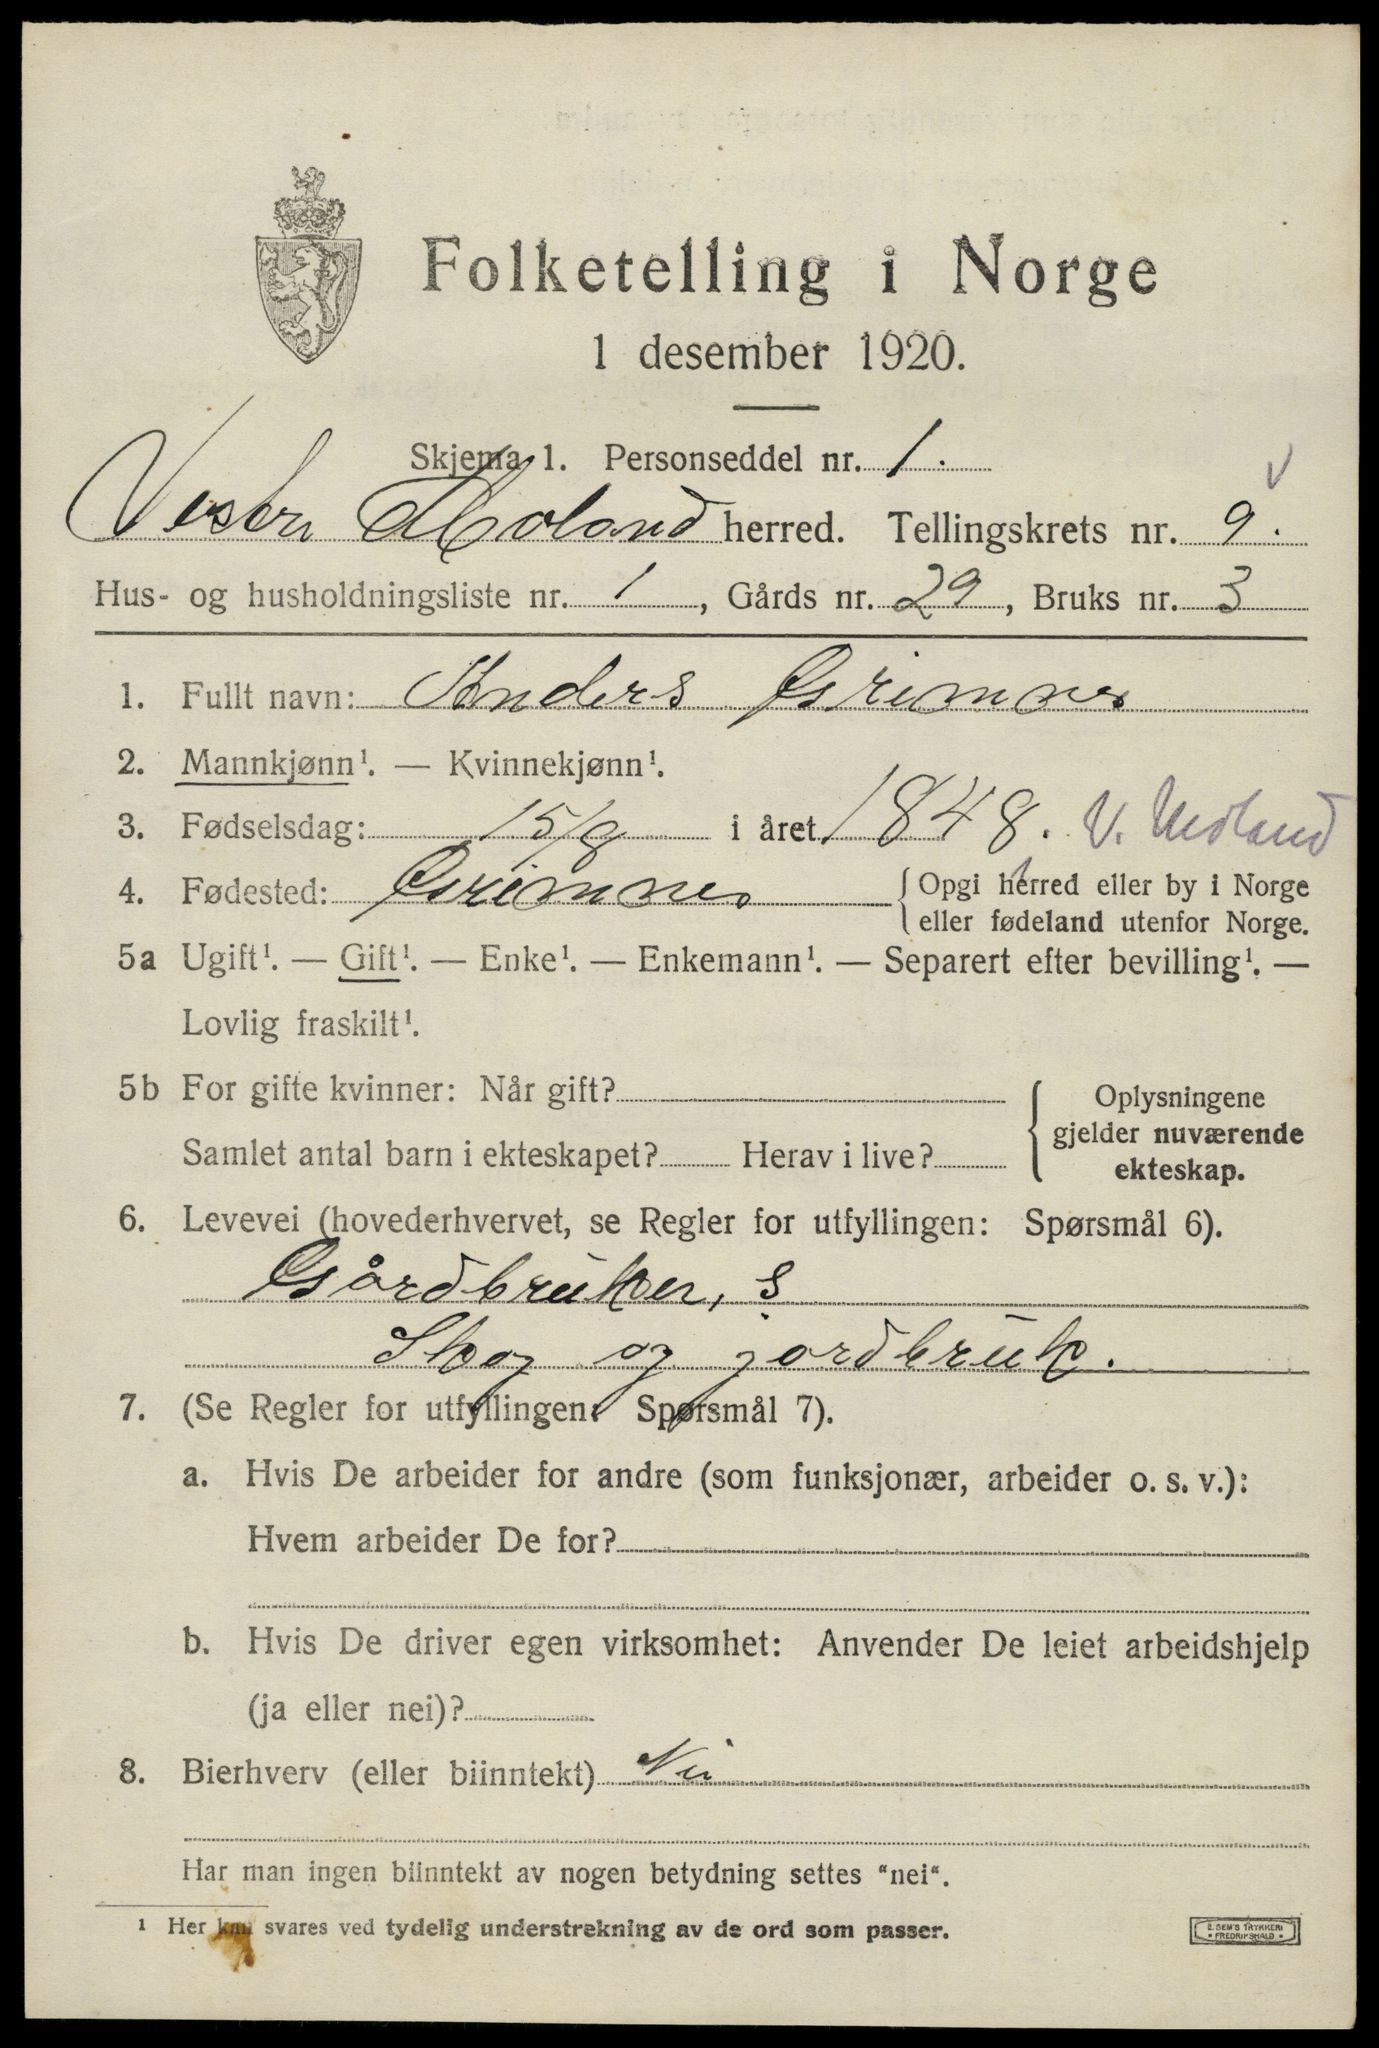 Folketelling i Norge
1 desember 1920.
Skjema 1. Personseddel nr. 1.
Vestre Moland herred. Tellingskrets nr. 9.
Hus- og husholdningsliste nr. 1, Gårds nr. 29, Bruks nr. 3
1. Fullt navn: Anders Grimnes
2. Mannkjønn¹. — Kvinnekjønn¹.
3. Fødselsdag: 15/8 i året 1848. V. Moland
4. Fødested: Grimnes { Opgi herred eller by i Norge
eller fødeland utenfor Norge.
5a Ugift¹. — Gift¹. — Enke¹. — Enkemann¹. — Separert efter bevilling¹. —
Lovlig fraskilt¹.
5b For gifte kvinner: Når gift?
Samlet antal barn i ekteskapet? Herav i live?
{ Oplysningene
gjelder nuværende
ekteskap.
6. Levevei (hovederhvervet, se Regler for utfyllingen: Spørsmål 6).
Gårdbruker, S
Skog og jordbruk.
7. (Se Regler for utfyllingen: Spørsmål 7).
a. Hvis De arbeider for andre (som funksjonær, arbeider o. s. v.):
Hvem arbeider De for?
b. Hvis De driver egen virksomhet: Anvender De leiet arbeidshjelp
(ja eller nei)?
8. Bierhverv (eller biinntekt) Nei
Har man ingen biinntekt av nogen betydning settes "nei".
¹ Her kan svares ved tydelig understrekning av de ord som passer.
E. SEM'S TRYKKERI
FREDRIKSHALD